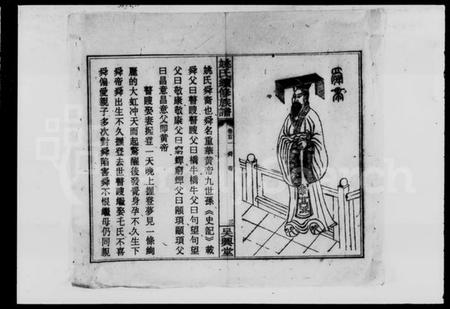 舜帝
姚氏續修族譜
卷首
舜帝
三
吳興堂
姚氏舜裔也舜名重華黃帝九世孫《史記》載
舜父曰瞽瞍瞽瞍父曰橋牛橋牛父曰句望句望
父曰敬康敬康父曰窮蟬窮蟬父曰顓頊顓頊父
曰昌意昌意父即黃帝
瞽瞍娶妻握登一天晚上握登夢見一條絢
麗的大虹冲天而起驚醒後發覺身孕不久生下
舜帝舜出生不久握登去世瞽瞍繼娶壬氏不喜
舜偏愛親子多次對舜陷害舜不恨繼母仍同親